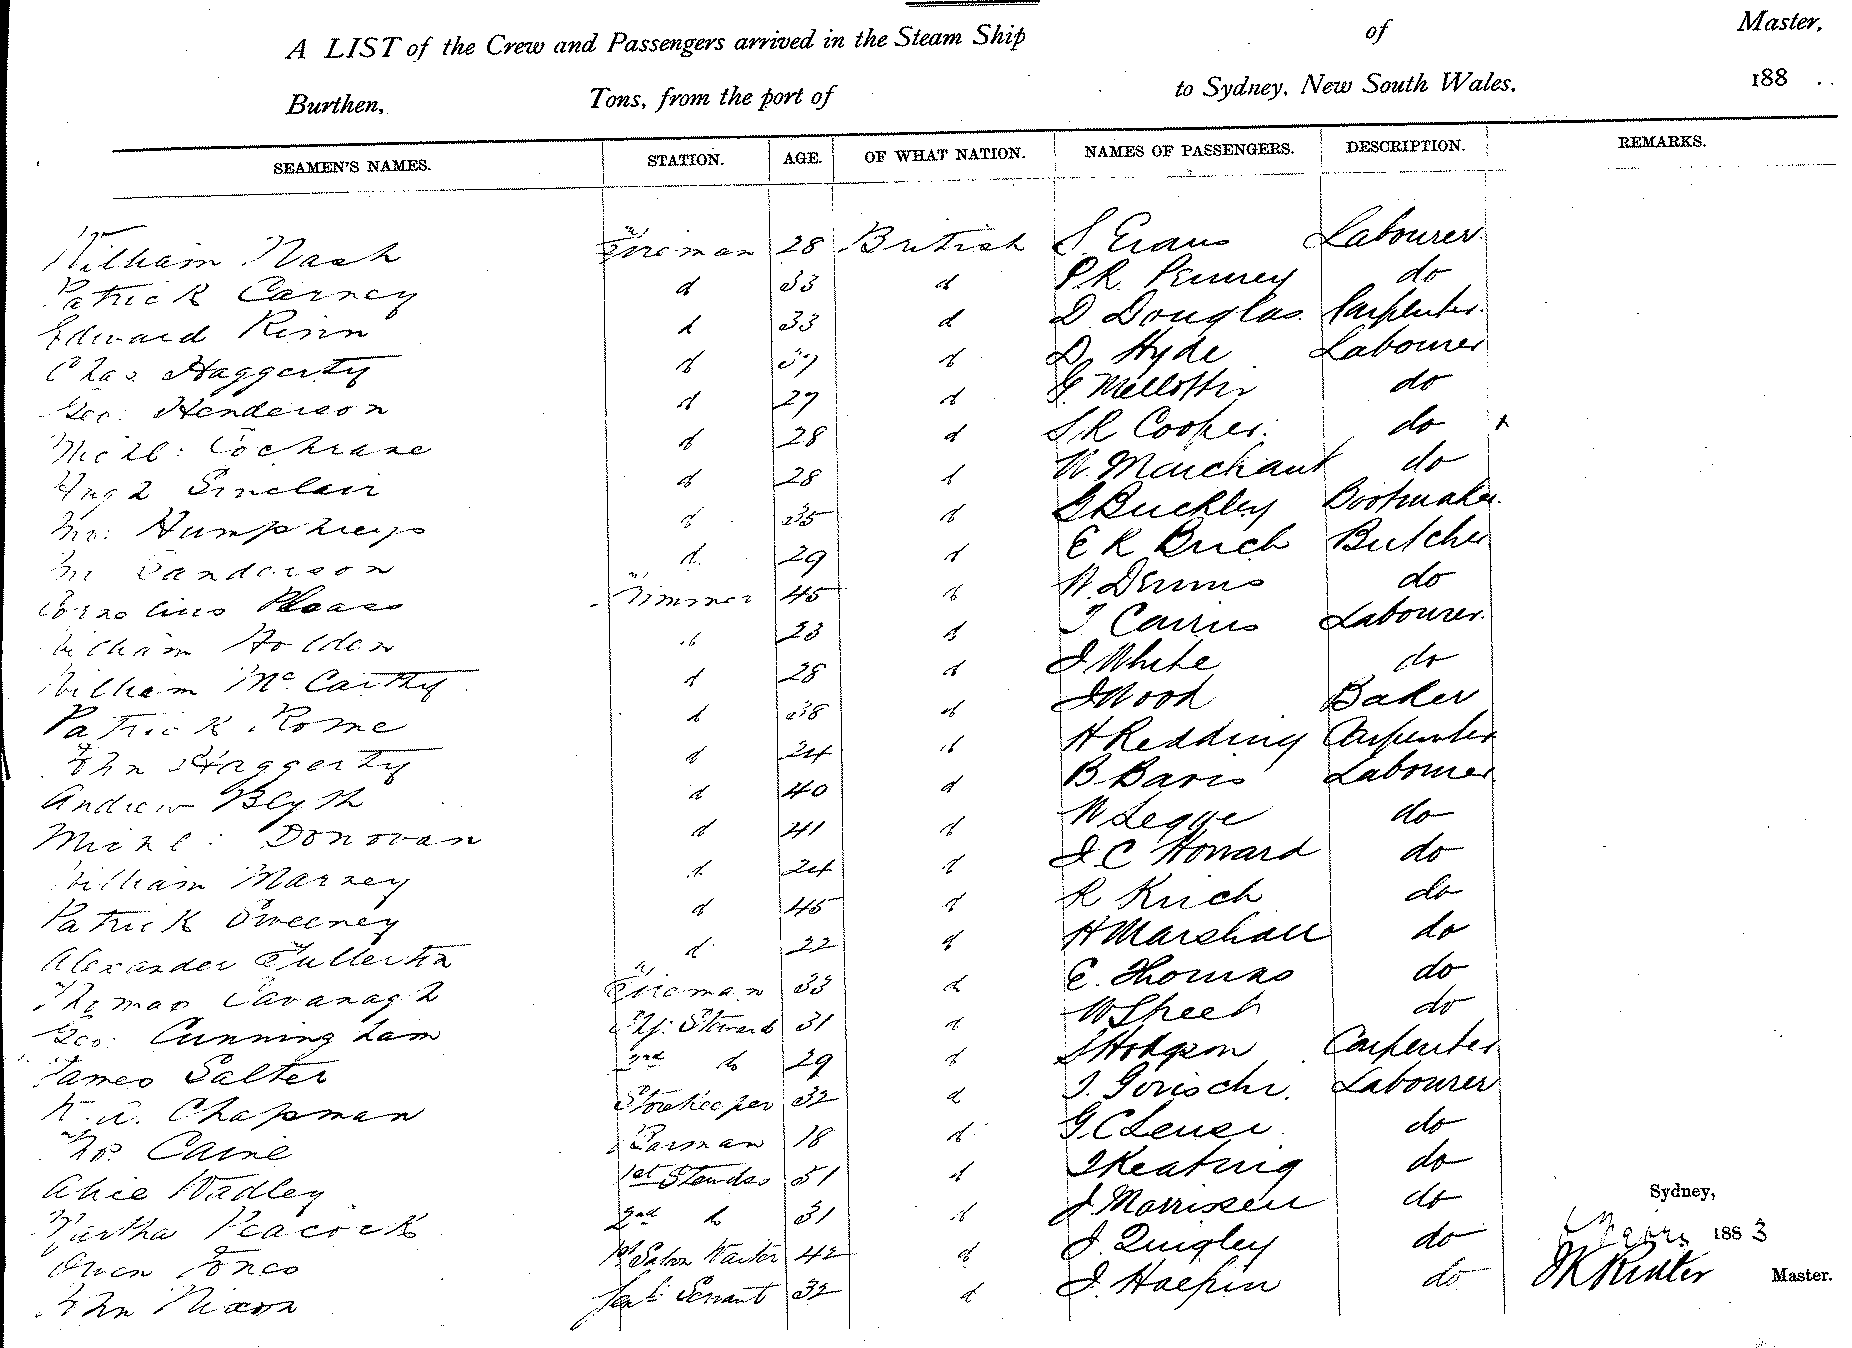 A LIST of the Crew and Passengers arrived in the Steam Ship of Master,
Burthen, Tons, from the port of to Sydney, New South Wales. 188
SEAMEN'S NAMES. STATION. AGE. OF WHAT NATION. NAMES OF PASSENGERS. DESCRIPTION. REMARKS.
William Nash Fireman 28 British S. Evans Labourer
Patrick Carney d 33 d P.R. Penney do
Edward Rinn d 33 d D Douglas Carpenter
Chas. Haggerty d 37 d D. Hyde Labourer
Geo: Henderson d 27 d G do
Michl: Cochrane d 28 d S R Cooper do
Sinclair d 28 d W. Marchant do
Humphreys d 35 d G Buckley Bootmaker
Sanderson d 29 d E R Butcher
Cornelius Trimmer 45 d W. Dennis do
William Holden d 23 d T Cairns Labourer
William McCarthy d 28 d J White do
Patrick Rome d 38 d J Wood Baker
John Haggerty d 24 d H Redding Carpenter
Andrew Blyth d 40 d B Davis Labourer
Michl: Donovan d 41 d W Legge do
William Marney d 24 d J. C Howard do
Patrick Sweeney d 45 d R do
Alexander Fullerton d 22 d H Marshall do
Thomas Cavanagh Fireman 33 d E. Thomas do
Geo: Cunningham Steward 31 d W do
James Salter 2nd d 29 d S Hodgson Carpenter
Chapman Storekeeper 32 d Labourer
Caine 18 d G. C do
Alice Wadley 1st Stewdss 51 d T Keating do
Martha Peacock 2nd d 31 d J. Morrissey do
Owen Jones 1st Saloon Waiter 42 d J. Quigley do
John Nixon Genl: Servant 32 d J. Halpin do
Sydney,
1883
Master.